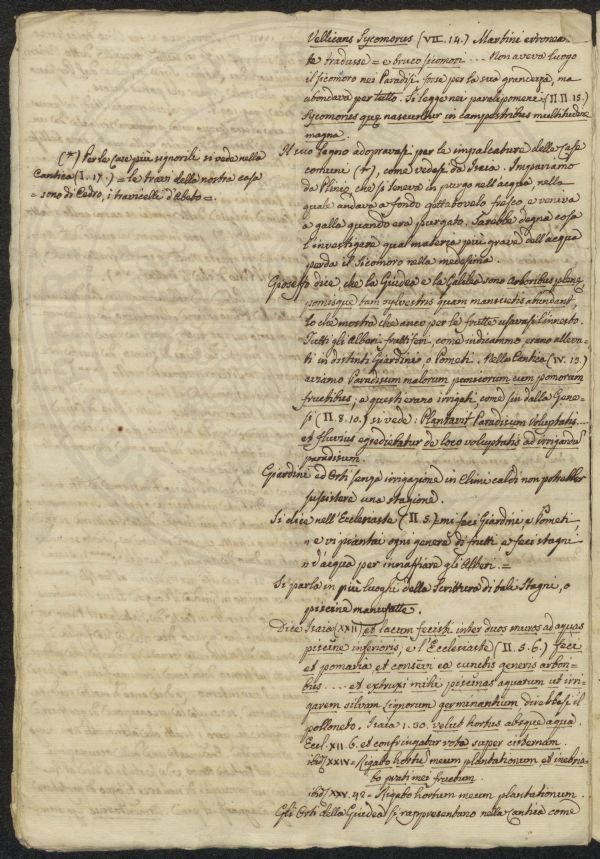 Vellicans Sycomoros (VII. 14.) Martini erronea
te tradusse = e bruco sicomori ... Non aveva luogo
il sicomoro nei Paradisi forse per la sua grandezza, ma
abondava per tutto. Si legge nei paralipomeni (II. II. 15.)
Sycomoros quę nascuntur in campestribus multitudine
magna.
Il suo legno adopravasi per le impalcature delle case
comuni (*), come vedesi da Isaia. Impariamo
da Plinio che si teneva in purgo nell'acqua, nella
quale andava a fondo gettatovelo fresco, e veniva
a galla quando era purgato. Sarebbe degna cosa
l'investigare qual materia più grave dell'acqua
perda il Sicomoro nella medesima.
(*) Per le case più signorili si vede nella
Cantica (I. 17.) = le travi della nostra casa
= sono di Cedro, i travicelli d'Abeto =.
Gioseffo dice, che la Giudea e la Galilea sono arboribus plenę
pomisque tam sylvestris quam mansuetis abundant
lo che mostra che anco per le frutte usavasi l'innesto.
Tutti gli Alberi fruttiferi, come indicammo erano alleva-
ti in distinti Giardini, o Pometi. Nella Cantica (IV. 13.)
aviamo Paradisum malorum punicorum cum pomorum
fructibus, e questi erano irrigati come fin dalla Gene-
si (II. 8. 10.) si vede: Plantavit Paradisum Voluptatis ....
et fluvius egrediebatur de loco voluptatis ad irrigandum
paradisum.
Giardini ed Orti senza irrigazione in Climi caldi non potrebber
sussistere una stagione.
Si dice nell'Ecclesiaste (II. 5.) = mi feci Giardini, e Pometi
" e vi piantai ogni genere di frutti, e feci stagni
" d'acqua per innaffiare gli Alberi. =
Si parla in più luoghi della Scrittura di tali Stagni, o
piscine manufatte.
Dice Isaia (XXII) et lacum fecisti inter duos muros ad aquas
piscinę inferioris, e l'Ecclesiaste (II. 5. 6.) feci
et pomaria et consevi ea cunctis generis arbori-
bus .... et extruxi mihi piscinas aquarum ut irri-
garem silvam lignorum germinantium direbbesi il
polloneto. Isaia 1. 30. velut hortus absque aqua.
Eccl. XII. 6. et confringatur rota super cisternam.
ibid. XXIV = Rigabo hortum meum plantationum et inebria-
bo prati mei fructum.
ibid. XXIV. 42 = Rigabo hortum meum plantationum.
Gli Orti della Giudea si rappresentano nella Cantica come